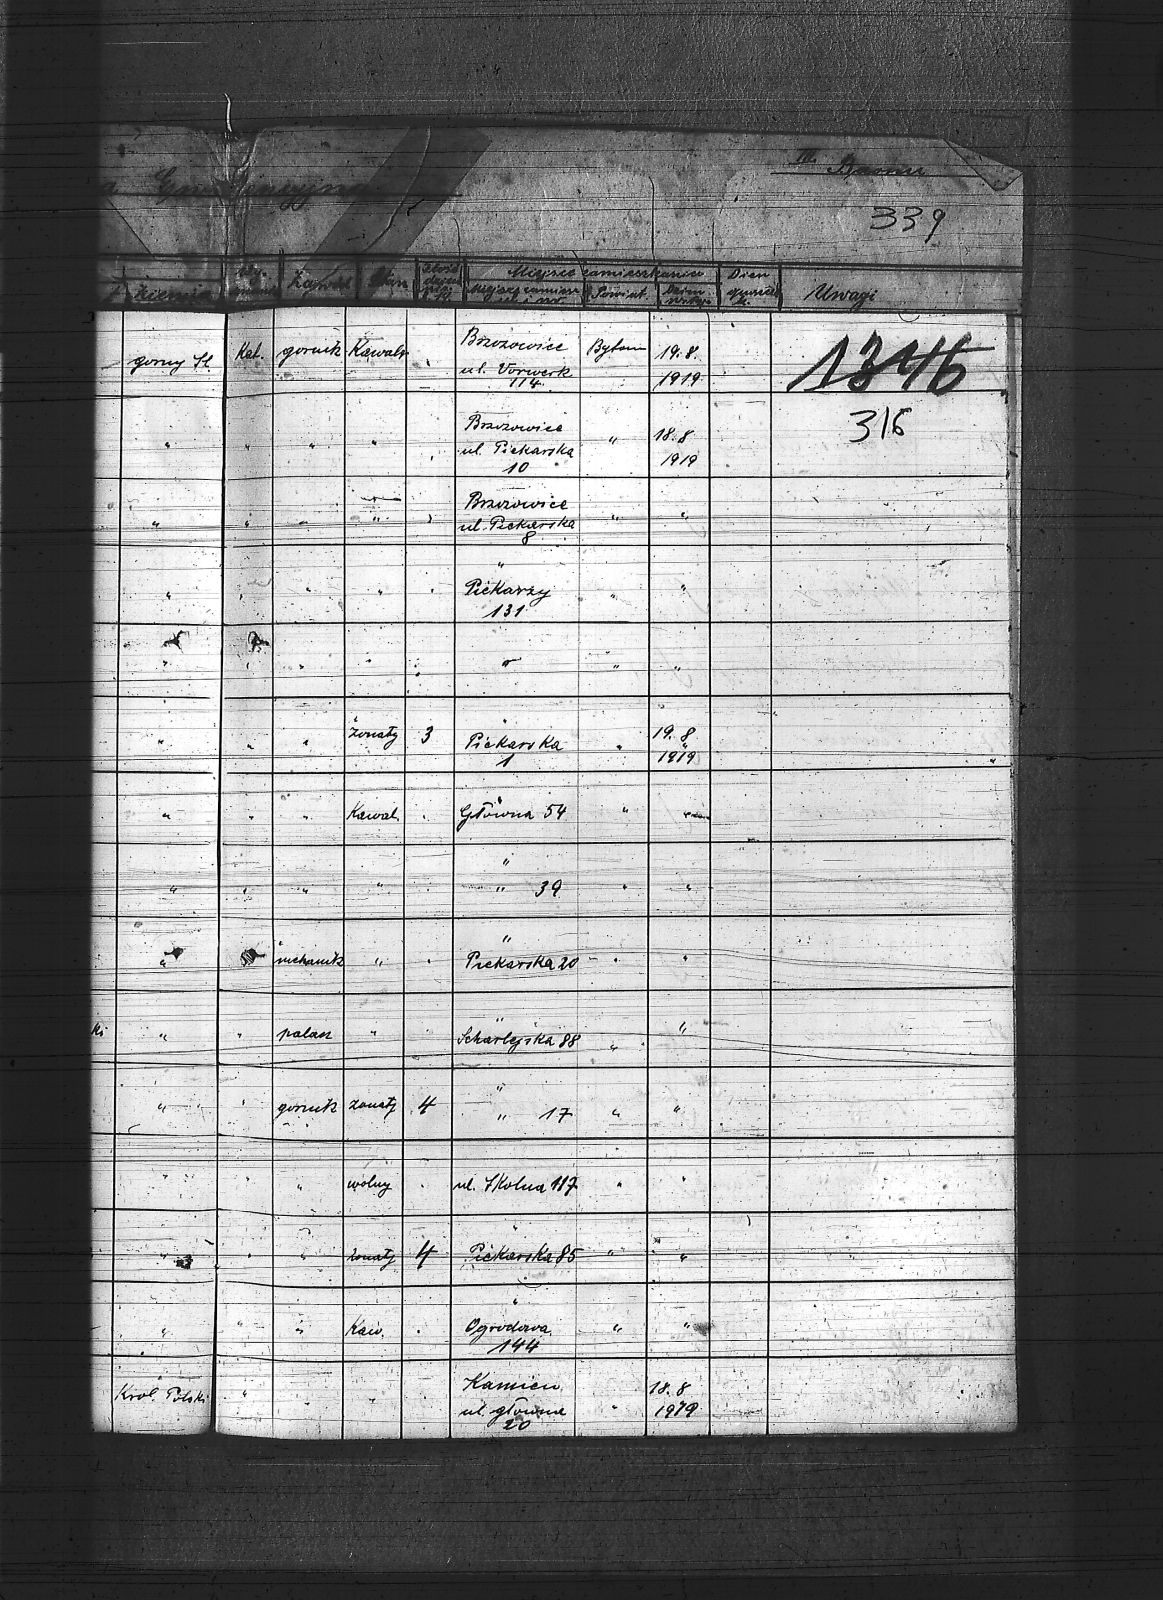 III. Baonu
339
Ziemia Zawód Stan Miejsce zamieszkania Dzień Uwagi
Powiat
1316
górny Śl. Kat. górnik Kawaler Brzozowice Bytom 19.8.
ul. Vorwerk
114 1919
316
" " " " Brzozowice " 18.8
ul. Piekarska
10 1919
" " " " Brzozowice " "
ul. Piekarska
8
"
" " " " Piekarzy " "
131
" " " " " "
"
" " " żonaty 3 Piekarska " 19.8
1 1919
" " " Kawal. Główna 54 "
"
" " " " " 39 " "
"
" mechanik " Piekarska 20 " "
"
" " palacz " Scharlejska 88 " "
"
" " górnik żonaty 4 " 17 " "
" " " wolny ul. Szkolna 117 " "
"
" " " żonaty 4 Piekarska 85 " "
"
" " " Kaw. Ogrodowa " "
144
Król. Polski " " " Kamień 18.8
ul. główna " 1919
20